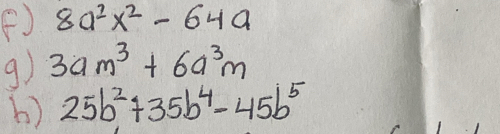 f) 8a²x² - 64a
g) 3am³ + 6a³m
h) 25b² + 35b⁴ - 45b⁵